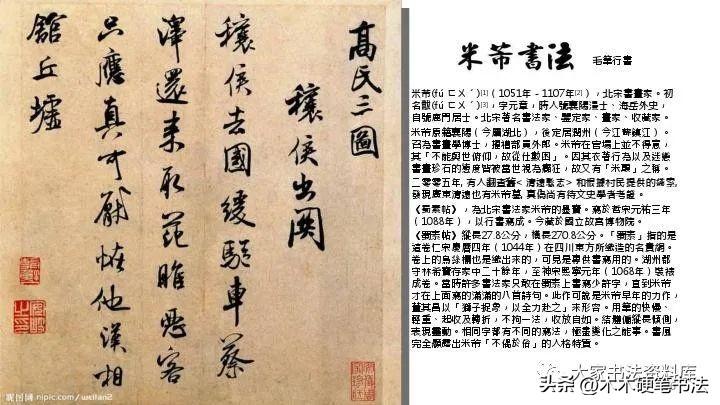 高氏三圖
穰侯出関
穰侯去國緩驅車蔡
澤還来取范睢惡客
只應真可厭恠他漢相
舘丘墟
昵图网 nipic.com/weilan2
米芾書法 毛筆行書
米芾(fú ㄈㄨˊ)[1]（1051年－1107年[2]），北宋書畫家。初
名黻(fú ㄈㄨˊ)[3]，字元章，時人號襄陽漫士、海岳外史，
自號鹿門居士。北宋著名書法家、鑒定家、畫家、收藏家。
米芾原籍襄陽（今屬湖北），後定居潤州（今江蘇鎮江）。
召為書畫學博士，擢禮部員外郎。米芾在官場上並不得意，
其「不能與世俯仰，故從仕數困」。因其衣著行為以及迷戀
書畫珍石的態度皆被當世視為癲狂，故又有「米顛」之稱。
二零零五年，有人翻查舊< 清遠縣志> 和根據村民提供的線索，
發現廣東清遠也有米芾墓，真偽尚有待文史學者考證。
《蜀素帖》，為北宋書法家米芾的墨寶。寫於哲宗元祐三年
（1088年），以行書寫成。今藏於國立故宮博物院。
《蜀素帖》縱長27.8公分，橫長270.8公分。「蜀素」指的是
這卷仁宗慶曆四年（1044年）在四川東方所織造的名貴絹。
卷上的烏絲欄也是織出來的，可見是專供書寫用的。湖州郡
守林希寶存家中二十餘年，至神宗熙寧元年（1068年）裝裱
成卷。當時許多書法家只敢在蜀素上書寫少許字，直到米芾
才在上面寫的滿滿的八首詩句。此作可說是米芾早年的力作，
董其昌以「獅子捉象，以全力赴之」來形容。用筆的快慢、
輕重、起收及轉折，不拘一法，收放自如。結體偏縱長傾側，
表現靈動。相同字都有不同的寫法，極盡變化之能事。書風
完全顯露出米芾「不偶於俗」的人格特質。
大家书法资料库
头条 @木木硬笔书法